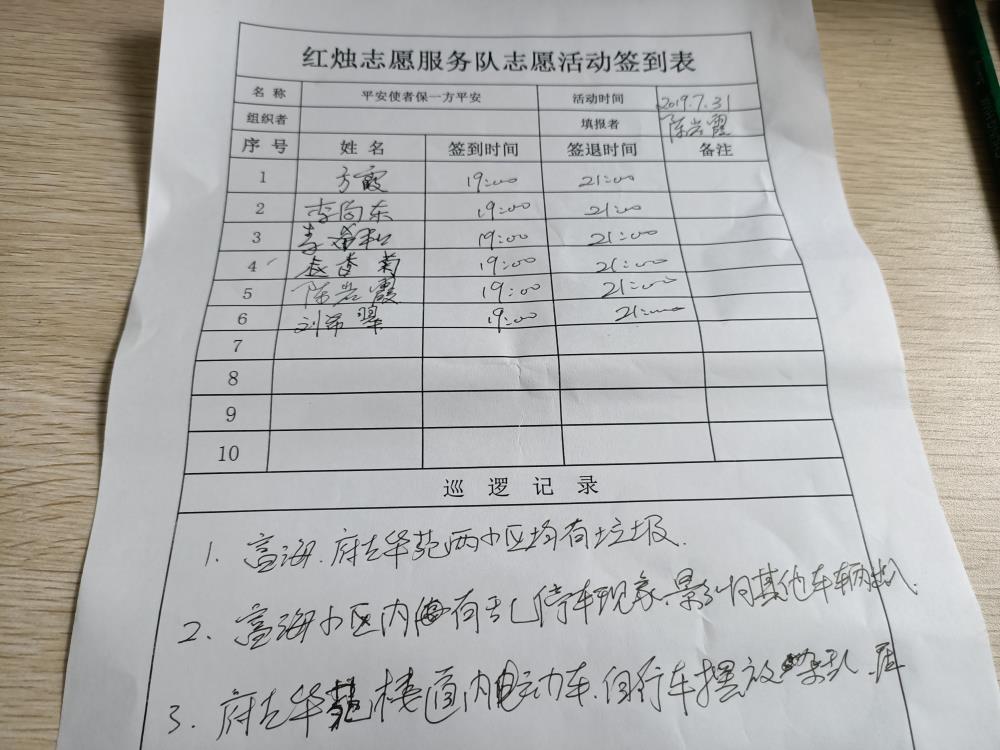 红烛志愿服务队志愿活动签到表
名称 平安使者保一方平安 活动时间 2019.7.31
组织者 填报者 陈岩霞
序号 姓名 签到时间 签退时间 备注
1 方霞 19:00 21:00
2 李向东 19:00 21:00
3 李 19:00 21:00
4 香菊 19:00 21:00
5 陈岩霞 19:00 21:00
6 刘希翠 19:00 21:00
7
8
9
10
巡逻记录
1. 富海.府左华苑两小区均有垃圾.
2. 富海小区内有乱停车现象.影响其他车辆出入.
3. 府左华苑楼道内电动车.自行车摆放杂乱.